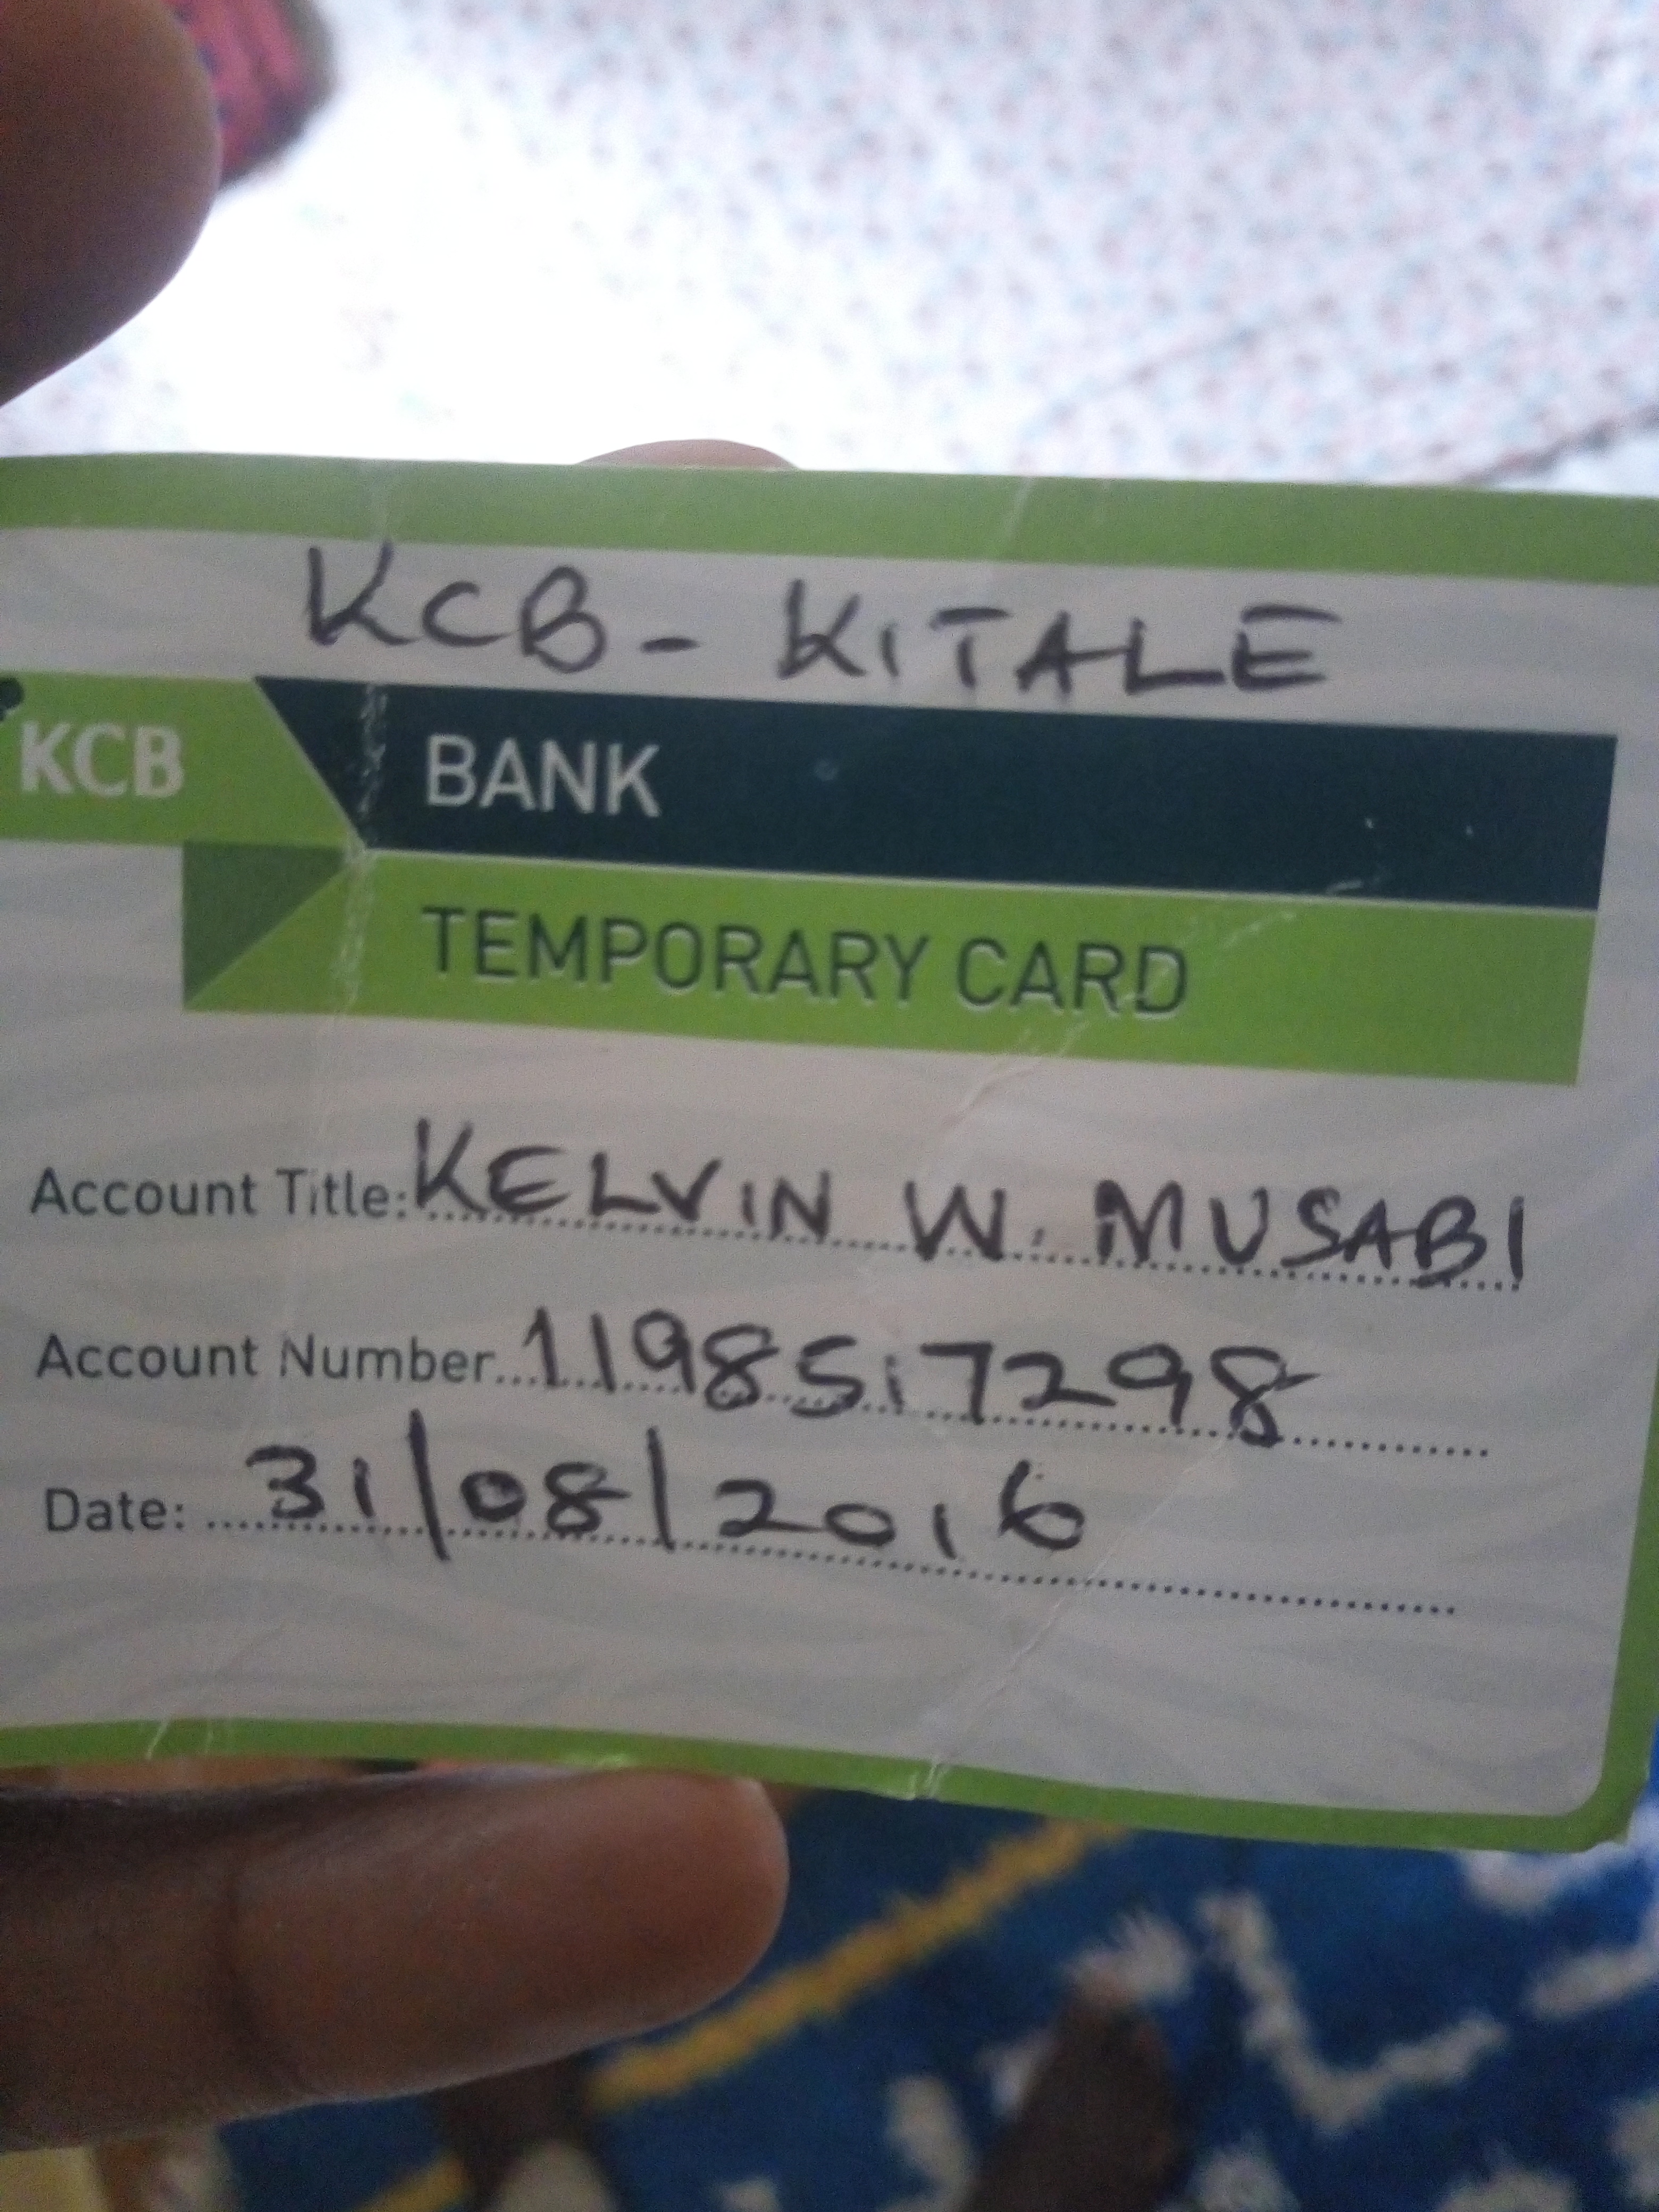 KCB - KITALE
KCB BANK
TEMPORARY CARD
Account Title: KELVIN W. MUSABI
Account Number 1198517298
Date: 31/08/2016